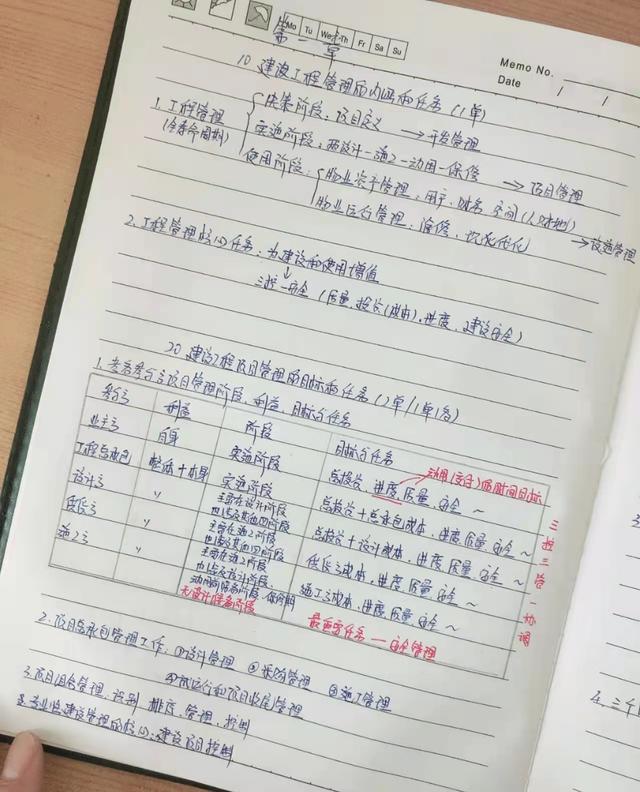 Mo Tu We Th Fr Sa Su
第一章
Memo No.
Date / /
10 建设工程管理的内涵和任务(1单)
1. 工程管理 (全寿命周期)
决策阶段:项目定义 → 开发管理
实施阶段:设计-施工-动用-保修 → 项目管理
使用阶段:
物业资产管理:用户、财务、空间 (人财地)
物业运行管理:维修、现代化 → 设施管理
2. 工程管理核心任务:为建设和使用增值
↓
三控一安全 (质量、投资(成本)、进度、建设安全)
20 建设工程项目管理的目标和任务(2单/1单1多)
1. 参与各方项目管理阶段、利益、目标与任务
参与方 利益 阶段 目标与任务
业主方 自身 实施阶段 总投资、进度、质量、安全~
动用(交付)的时间目标
工程总承包 整体+本身 实施阶段 总投资+总承包成本、进度、质量、安全~
设计方 〃 主要在设计阶段 也涉及其他四阶段 总投资+设计成本、进度、质量、安全~
供货方 〃 主要在施工阶段 也涉及其他四阶段 供货方成本、进度、质量、安全~
施工方 〃 主要在施工阶段 也涉及设计阶段、动用前准备阶段、保修期 施工方成本、进度、质量、安全~
无设计准备阶段
最重要任务—安全管理
三控三管一协调
2. 项目总承包管理工作:①设计管理 ②采购管理 ③施工管理
④试运行和项目收尾管理
3. 项目组合管理:识别、排序、管理、控制
建设管理的核心:建设项目控制
4. 三个